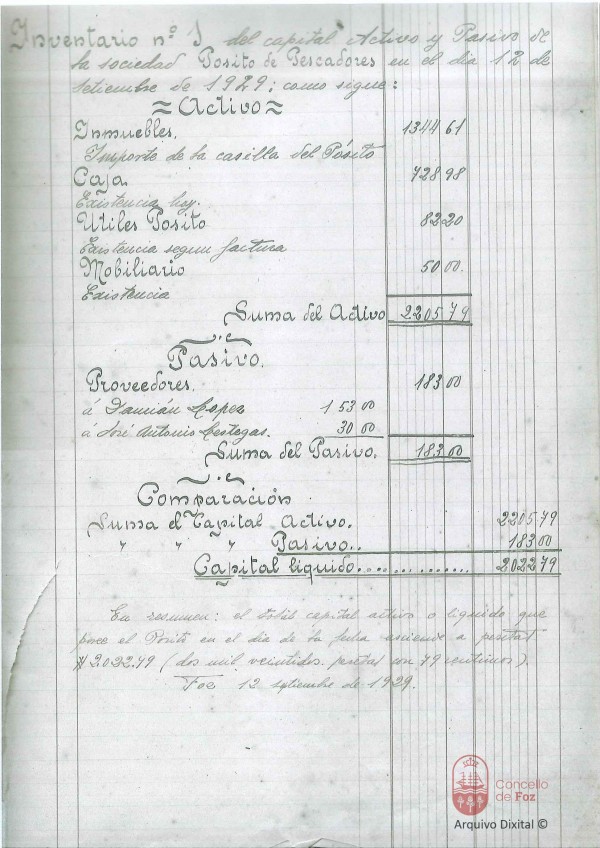 Inventario nº 1 del capital Activo y Pasivo de
la sociedad Posito de Pescadores en el dia 12 de
Setiembre de 1929; como sigue:
= Activo =
Inmuebles. 1344 61
Importe de la casilla del Pósito
Caja. 728 98
Existencia hoy.
Utiles Posito 82 20
Existencia segun factura
Mobiliario 50 00.
Existencia
Suma del Activo 2205 79
Pasivo.
Proveedores. 183 00
á Damián Lopez 153 00
á José Antonio 30 00
Suma del Pasivo. 183 00
Comparación
Suma el Capital Activo. 2205 79
" " " Pasivo.. 183 00
Capital líquido............. 2022 79
En resumen: el total capital activo o liquido que
posee el Posito en el dia de la fecha asciende a pesetas
2.022.79 (dos mil veintidos pesetas con 79 centimos).
Foz 12 setiembre de 1929.
Concello
de Foz
Arquivo Dixital ©